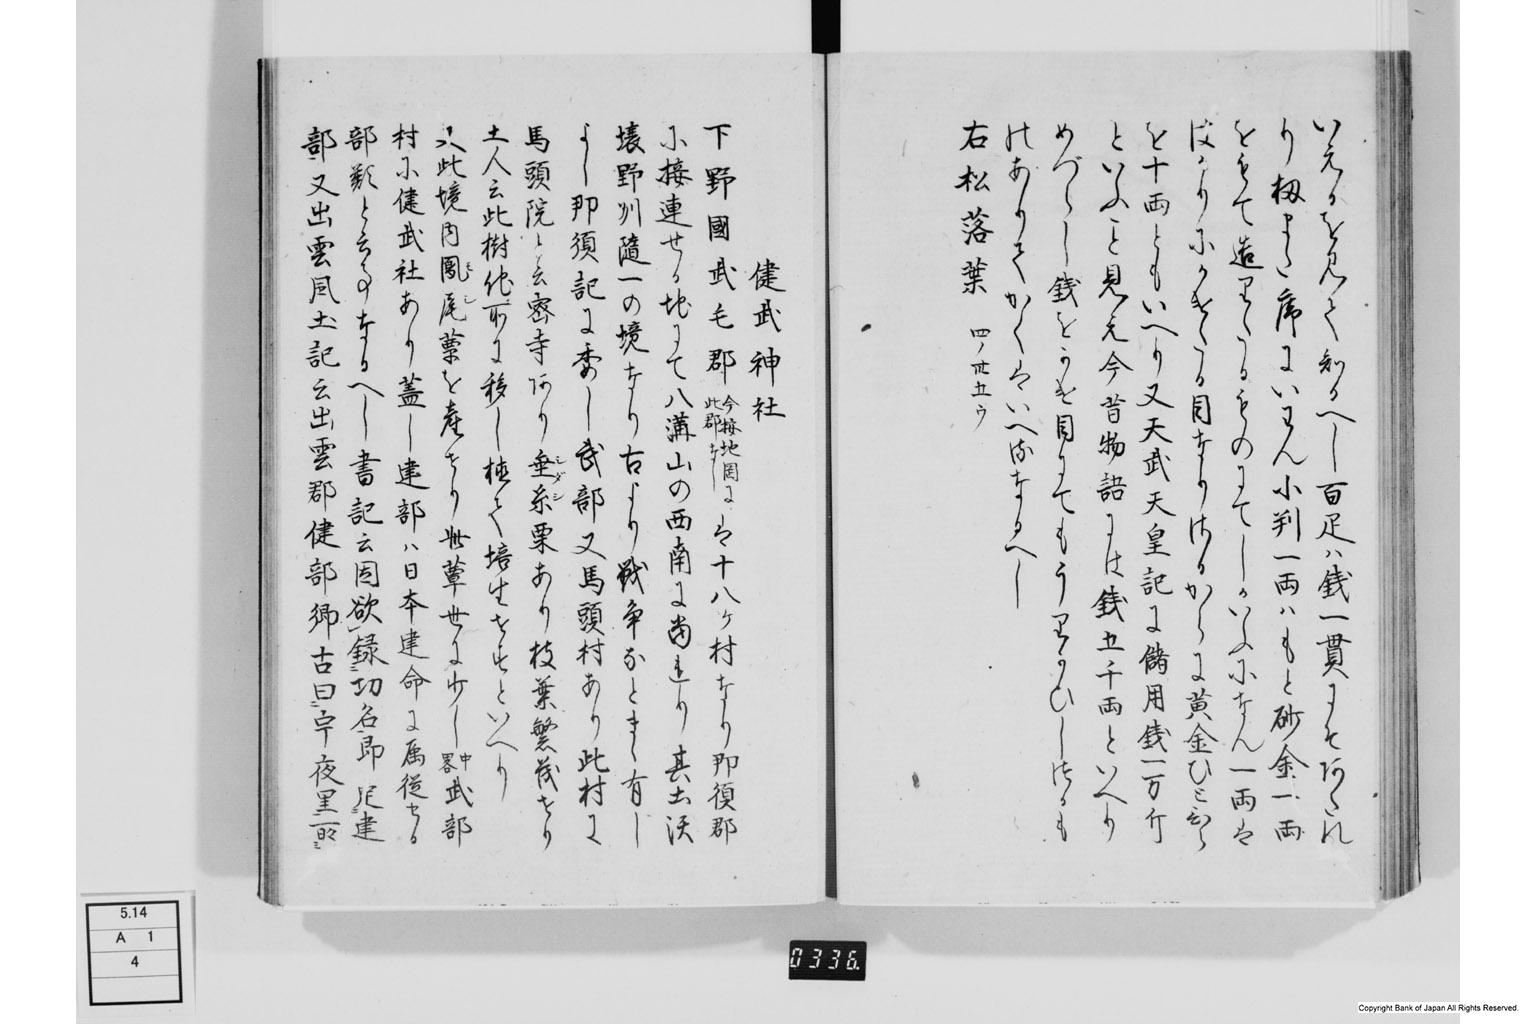 いえるを見て知るへし百疋ハ銭一貫
り 席にいはん小判一両ハもと砂金一両
をもて造りたるものにてしかいふになん一両は
目なり 黄金ひとひら
を十両ともいへり又天武天皇記に儲用銭一万斤
といふこと見え今昔物語には銭五千両といへり
めづらし銭をかけ目にてもうりかひしけるも
のありてかくはいへるなるへし
右松落葉 四ノ卅五ウ
健武神社
下野國武毛郡 今接地図に此郡なし は十八ヶ村なり那須郡
に接連せる地にて八溝山の西南に当れり其土沃
壌野州随一の境なり古より戦争なとまゝ有し
よし那須記に委し武部又馬頭村あり此村に
馬頭院と云密寺あり垂糸栗あり枝葉繁茂せり
シダシ
土人云此樹他所に移し植て培生せすといへり
又此境内鳳尾蕈を産せり此蕈世に少し中畧武部
モシ
村に健武社あり蓋し建部ハ日本建命に属従せる
部類と云事なるへし書記云因欲録功名即定建
部又出雲風土記云出雲郡健部郷古曰宇夜里
5.14
A 1
4
0336
Copyright Bank of Japan All Rights Reserved.